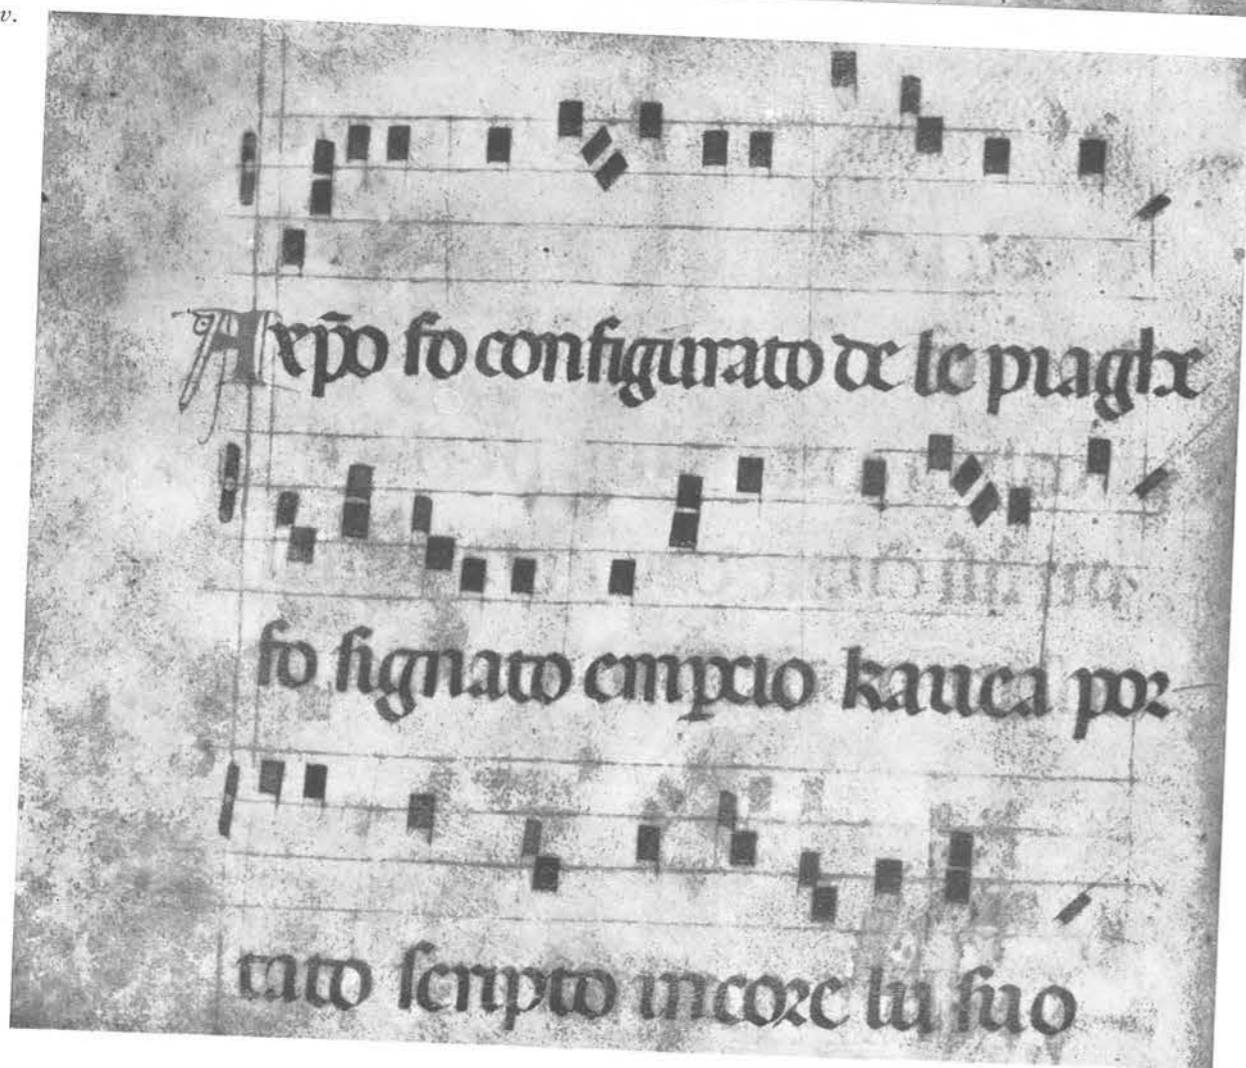 v.
A xp̄o fo configurato de le piaghe
fo signato emperio kauea por
tato scripto in core lu suo